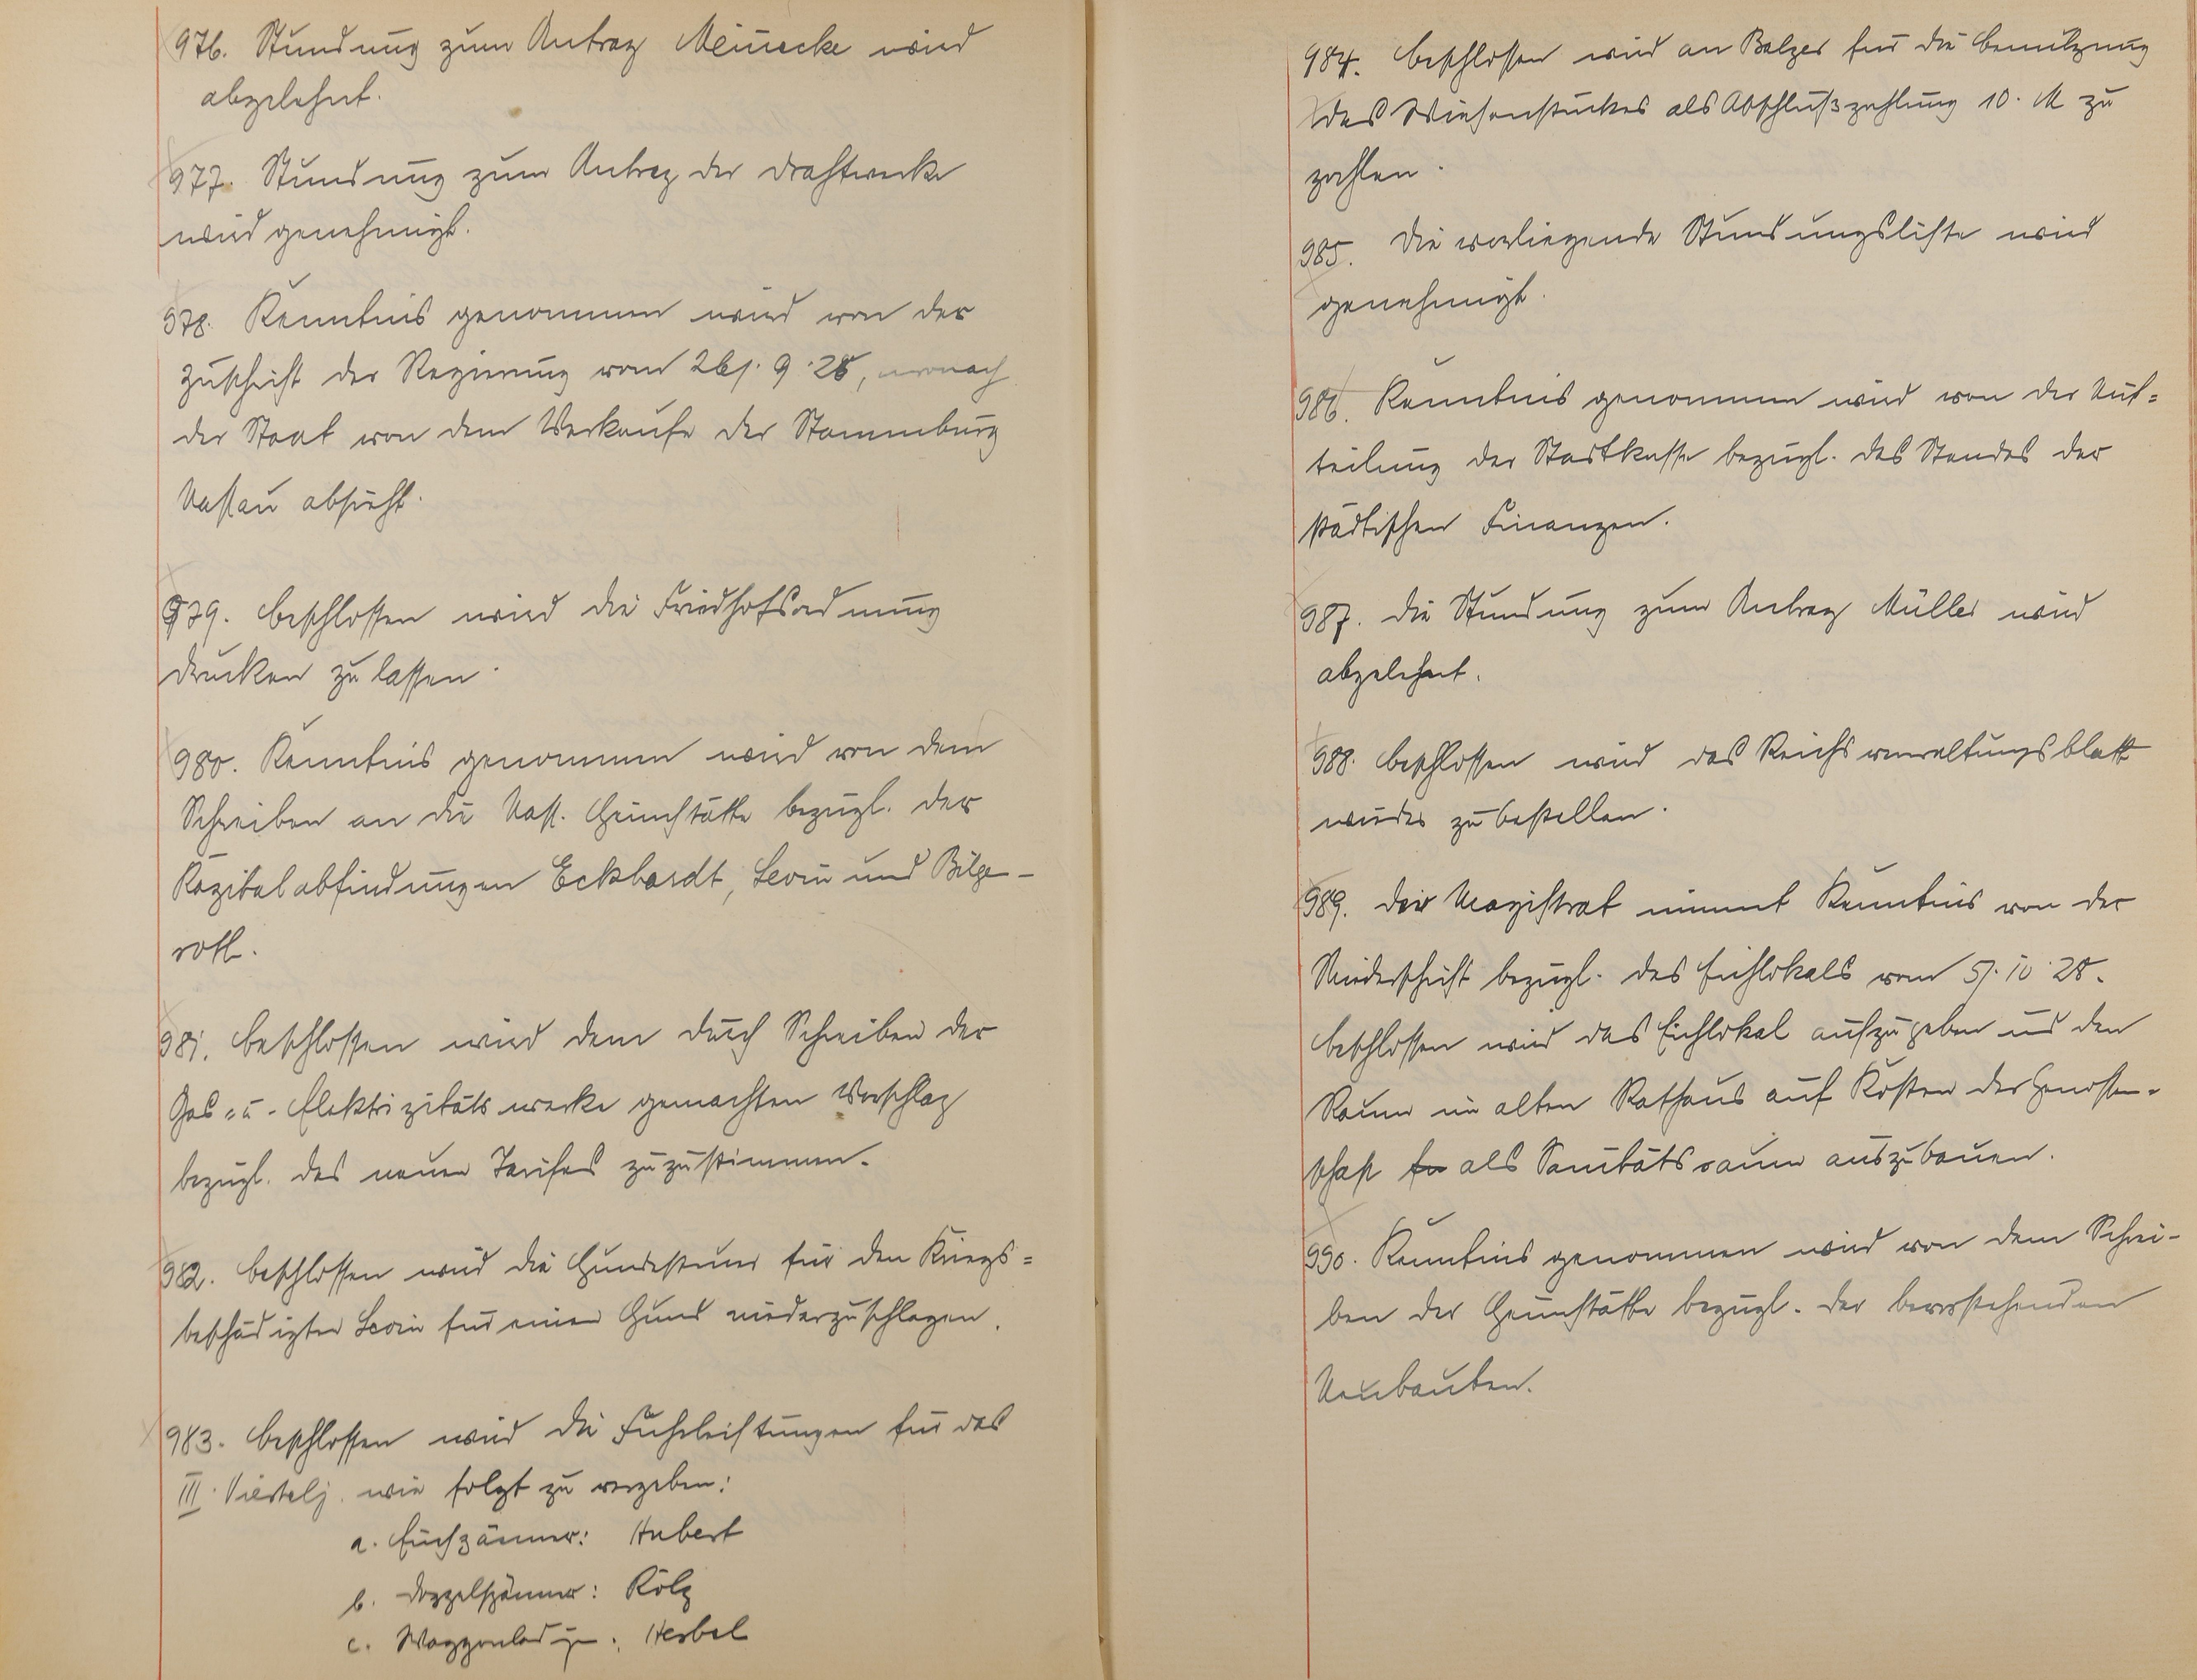 976. Stundung zum Antrag Meinecke wird
abgelehnt.
977. Stundung zum Antrag der Drahtwerke
wird genehmigt.
978. Kenntnis genommen wird von der
Zuschrift der Regierung vom 26. 9. 28, wonach
der Staat von dem Verkaufe der Stammburg
Nassau absieht.
979. Beschlossen wird die Friedhofsordnung
drucken zu lassen.
980. Kenntnis genommen wird von dem
Schreiben an die Nass. Heimstätte bezügl. der
Kapitalabfindungen Eckhardt, Levin und Bilge-
roth.
981. Beschlossen wird dem durch Schreiben der
Gas- u. Elektrizitätswerke gemachten Vorschlag
bezügl. des neuen Tarifes zuzustimmen.
982. Beschlossen wird die Hundesteuer für den Kriegs=
beschädigten Levin für einen Hund niederzuschlagen.
983. Beschlossen wird die Fuhrleistungen für das
III. Viertelj. wie folgt zu vergeben:
a. Einspänner: Hubert
b. Doppelspänner: Kölz
c. Waggonladg.: Herbel
984. Beschlossen wird an Balzer für die Benützung
des Wiesenstückes als Abschlußzahlung 10. M zu
zahlen.
985. Die vorliegende Stundungsliste wird
genehmigt.
986. Kenntnis genommen wird von der Auf=
teilung der Stadtkasse bezügl. des Standes der
städtischen Finanzen.
987. Die Stundung zum Antrag Müller wird
abgelehnt.
988. Beschlossen wird das Reichsverwaltungsblatt
wieder zu bestellen.
989. Der Magistrat nimmt Kenntnis von der
Niederschrift bezügl. des Eichlokals vom 5. 10. 28.
Beschlossen wird das Eichlokal aufzugeben und den
Raum im alten Rathaus auf Kosten der Genossen-
schaft als Sanitätsraum auszubauen.
990. Kenntnis genommen wird von dem Schrei-
ben der Heimstätte bezügl. der bevorstehenden
Neubauten.